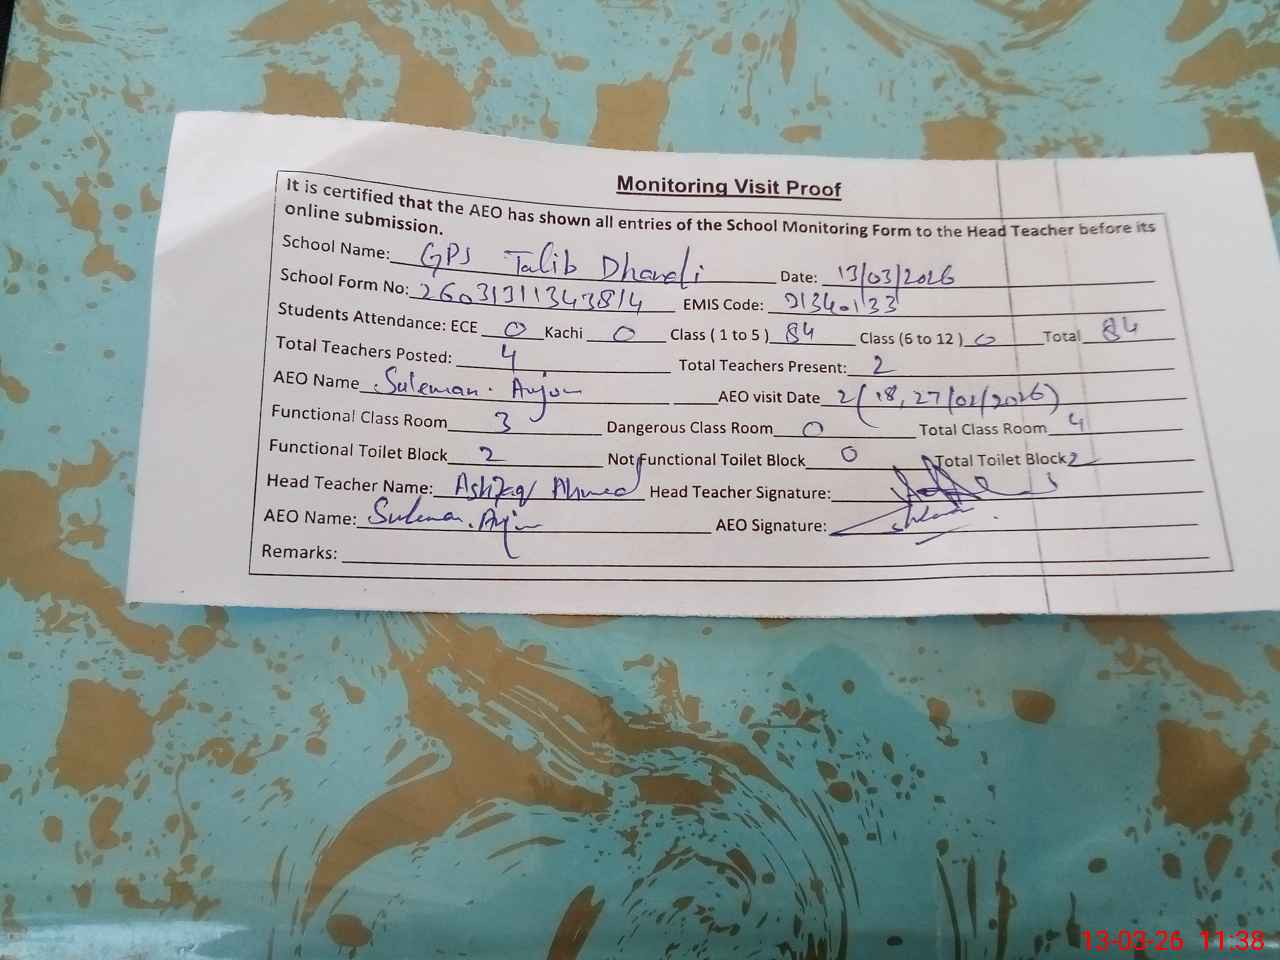 Monitoring Visit Proof
It is certified that the AEO has shown all entries of the School Monitoring Form to the Head Teacher before its
online submission.
School Name: GPS Talib Dharali Date: 13/03/2026
School Form No: 26031311343814 EMIS Code: 31340133
Students Attendance: ECE 0 Kachi 0 Class ( 1 to 5 ) 84 Class (6 to 12 ) 0 Total 84
Total Teachers Posted: 4 Total Teachers Present: 2
AEO Name Suleman. Anjum AEO visit Date 2( 18, 27/02/2026)
Functional Class Room 3 Dangerous Class Room 0 Total Class Room 4
Functional Toilet Block 2 Not Functional Toilet Block 0 Total Toilet Block 2
Head Teacher Name: Ashfaq Ahmed Head Teacher Signature:
AEO Name: Suleman. Anjum AEO Signature:
Remarks:
13-03-26 11:38